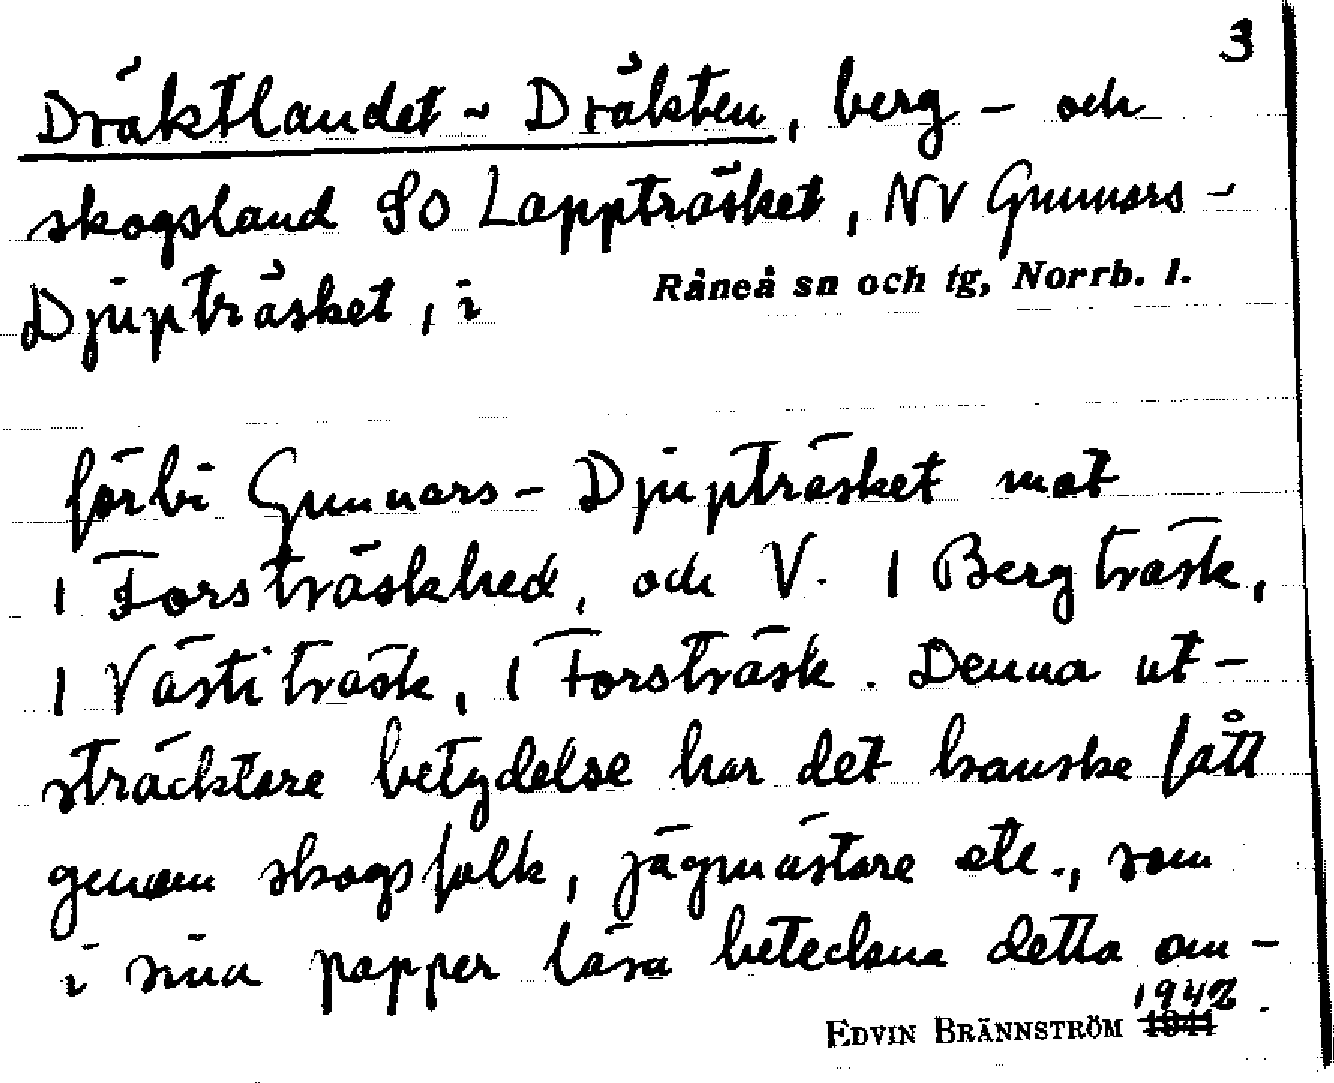 3
Dräktlandet ~ Dräkten, berg - och
skogsland SO Lappträsket, NV Gunnars-
Djupträsket, i Råneå sn och tg, Norrb. l.
förbi Gunnars-Djupträsket mot
l Forsträskhed, och V. l Bergträsk,
l Västiträsk, l Forsträsk. Denna ut-
sträcktare betydelse har det kanske fått
genom skogsfolk, jägmästare etc., som
i sina papper lära beteckna detta om-
1942.
EDVIN BRÄNNSTRÖM 1941